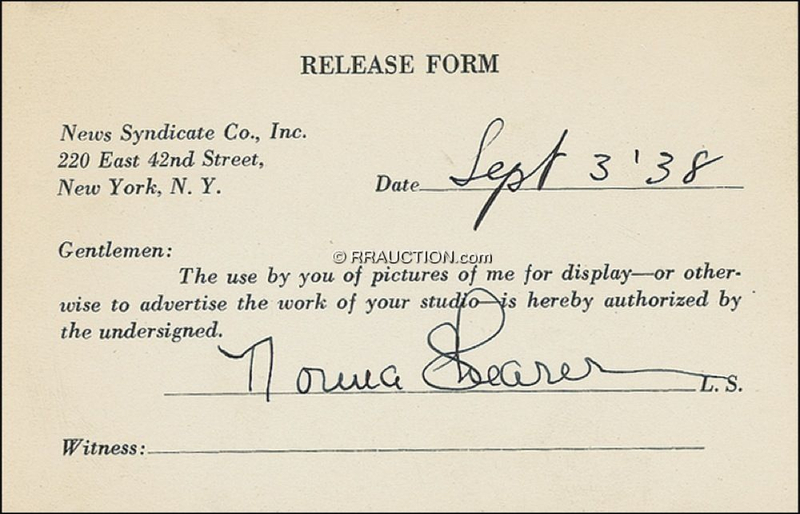 RELEASE FORM
News Syndicate Co., Inc.
220 East 42nd Street,
New York, N. Y.
Date Sept 3 '38
Gentlemen:
© RRAUCTION.com
The use by you of pictures of me for display—or other-
wise to advertise the work of your studio—is hereby authorized by
the undersigned.
Norma Shearer L. S.
Witness: